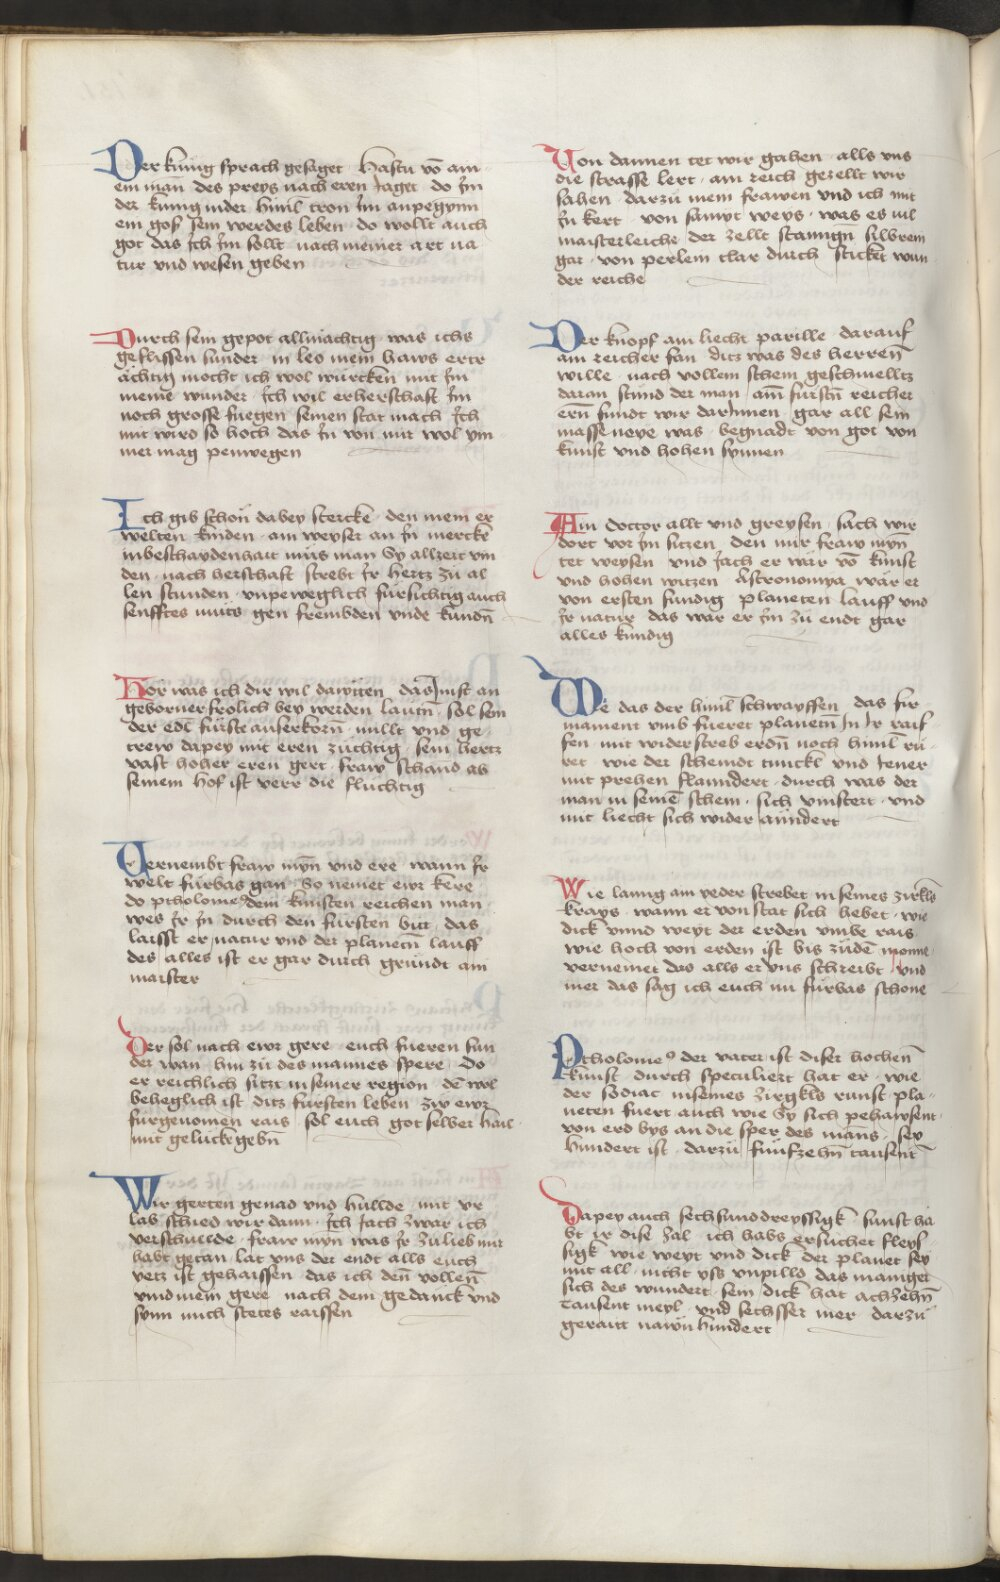 Der kunig sprach gesaget · Hastu vō am
em man des preys nach eren Jaget · do Jm
der kunig in der himl tron Jm anpegynn
ein gos sein werdes leben · do wollt auch
got das Jch Jm sollt nach meiner art na
tur vnd wesen geben
Durch sein gepot allmächtig · was ichs
geflissen sunder · in leo mein haws ertr
ächtig mocht ich wol würcken mit Jm
meine wunder · Jch wil erherschaft Jm
noch grosse fuegen seinen stat mach Jch
mit wird so hoch das Jn von mir wol ym
mer mag penwegen
Ich gib schon dabey stercke · den mein er
welten kinden · am weyser an Jn mercke
inbeschaydenhait müs man Sy allzeit vin
den · nach herschaft strebt Jr hertz zu al
len stunden · vnpeweglich fürsichtig auch
senfftes muts · gen frembden vnde kundn̄
Hör was ich dir wil dawtten · das Jm ist an
geborner frolich bey werden lautn̄ · sol sein
der edl fürste auserkorn̄ · millt vnd ge
trew dapey mit eren züchtig · sein hertz
vast hoher eren gert · fraw schand ab
seinem hof ist verr die fluchtig
Vernembt fraw myn̄ vnd ere · wann Jr
welt fürbas gan · So nemet ewr kere
do ptholomeꝰ dem kunsten reichen man
wes Jr Jn durch den fürsten bitt · das
laisst er natur vnd der planetn̄ lauff
des alles ist er gar durch gründt am
maister
Der sol nach ewr gere · euch fueren sun
der wan · hin zu des mannes spere · Do
er reichlich sitzt in seiner region · dē wol
beheglich ist · ditz fürsten leben · zw ewr
fürgenomen rais · sol euch got selber hail
mit gelückgebn̄
Wir gerten genad vnd hullde · mit vr
lab schied wir dann · Jch Jach zwar ich
verschullde · fraw myn was Jr zu lieb mir
habt getan · lat vns der endt alls euch
yetz ist gehaissen · das ich den̄ vollen̄
vind mein gere · nach dem gedanck vnd
synn mich stetes raissen
Von dannen tet wir gahen · alls vns
die strasse lert · am reich gezellt wir
sahen · darzu mein frawen vnd ich mit
Jn kert · von samyt weys · was es vil
maisterleiche · der zellt stanngn̄ silbrein
gar · von perlein clar durch sticket wun
der reiche
Der knopf am liecht parille · darauf
am reicher fan · ditz was des herren̄
wille · nach vollem schein geschmelltz
daran stund der man · am fürstn̄ reicher
ern̄ fundt wir darJnnen · gar all sein
massenoye was · begnadt von got von
kunst vnd hohen synnen
Am doctor allt vnd greysen · sach wir
dort vor Jm sitzen · den mir fraw myn̄
tet weysen · vnd Jach er wär vō kunst
vnd hohen witzen · Astronomya wär er
von ersten fundig · planeten lauff vnd
Jr natur · das war er Jm zu endt gar
alles kundig
We das der himl schwayffen · das fir
mament vmb fueret planetn̄ Jn Jr raif
fen · mit widerstreb erdn̄ noch himl rü
ret · wie der scheindt tunckl vnd Jener
mit prehen flaundert · durch was der
man in seinē schein · sich vinstert · vnd
mit liecht sich wider aundert
Wie lanng am yeder strebet · in seines zirkls
krays · wann er von stat sich hebet · wie
dick vnnd weyt der erden vmbe rais
wie hoch von erden ist · bis zudē mone
vernemet das alls er vns schreibt · vnd
mer das sag ich euch nu fürbas schone
Ptholomeꝰ der vater ist diser hochen̄
kunst · durch speculiert hat er · wie
der zodiac in seines zirgkls runst · pla
neten fuert · auch wie Sy sich pehawsent
von erd bys an die sper des mans · sey
hundert ist · darzu funfzehn̄ tausent
Dapey auch sechsunddreyssigk · sunst ha
bt ir dise zal · ich habs ersuchet fleys
sigk · wie weyt vnd dick der planet sey
mit all · nicht vss vnpilld das maniger
sich des wundert · sein dick hat achzehn̄
tausent meyl · vnd sechsser mer · darzu
geraitt nawn hundert